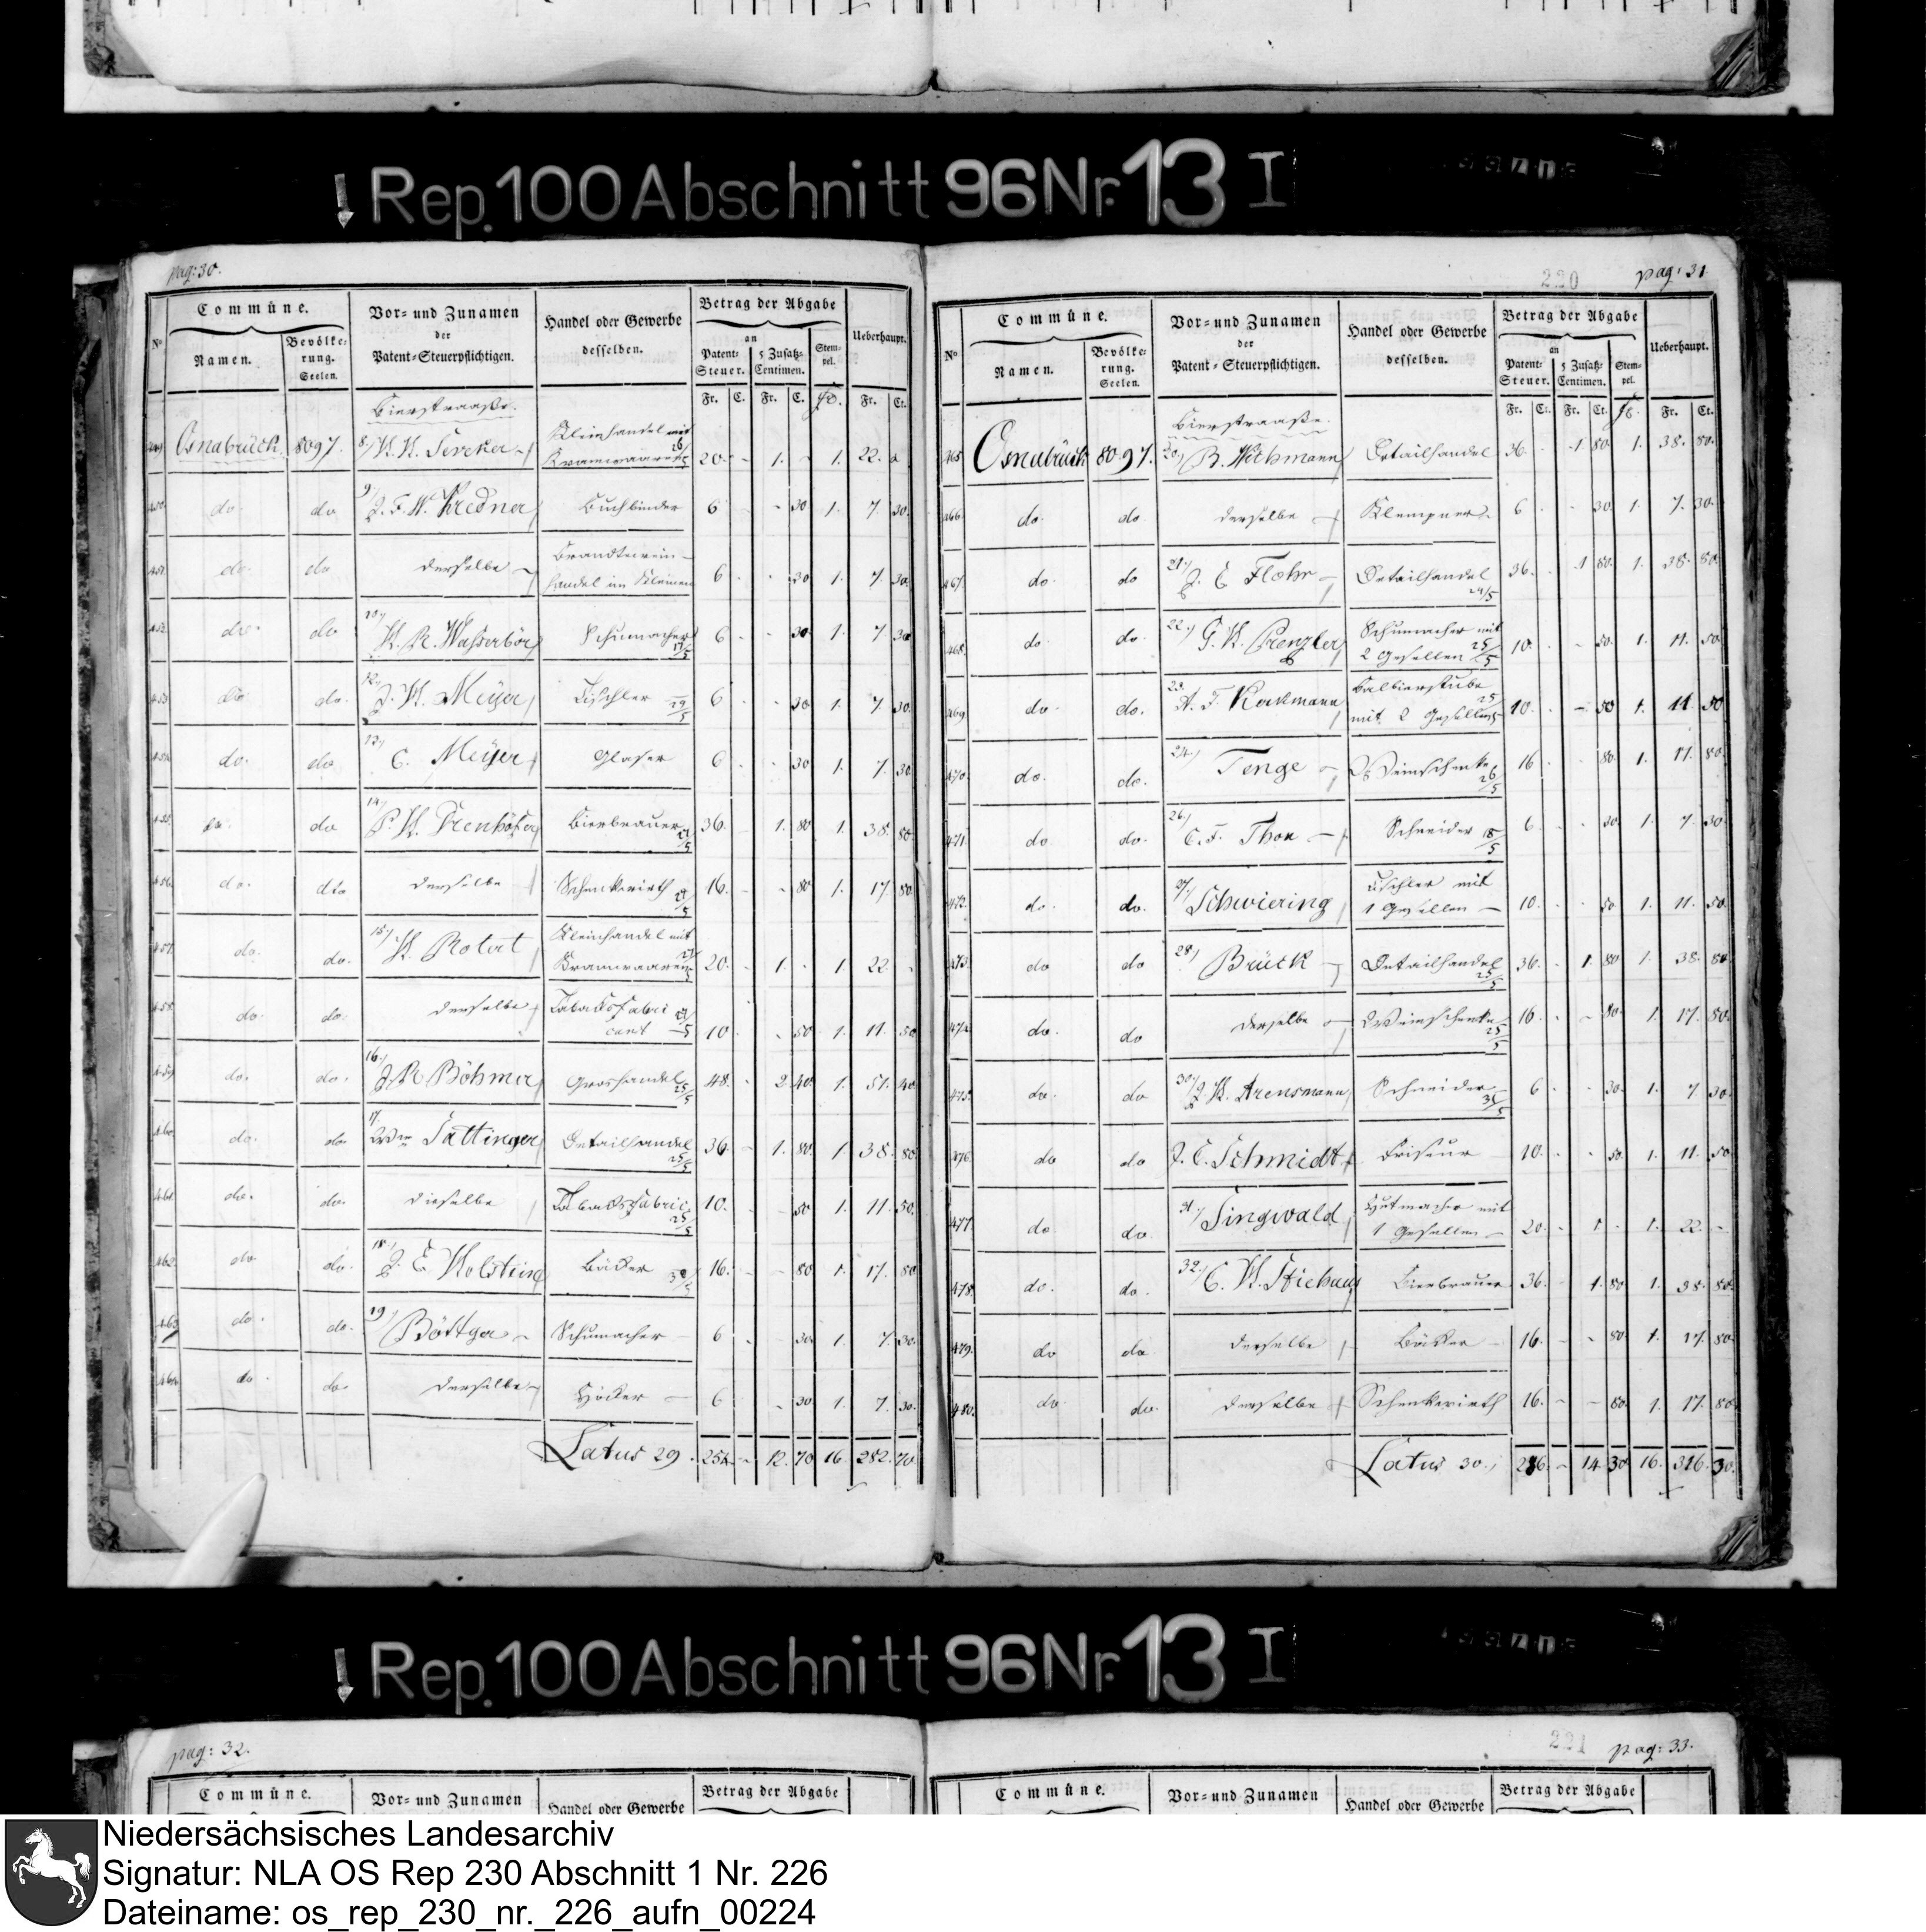 ↓ Rep. 100 Abschnitt 96 Nr. 13 I
pag: 30.
N° Commüne. Vor- und Zunamen der Patent-Steuerpflichtigen. Handel oder Gewerbe desselben. Betrag der Abgabe Ueberhaupt.
Namen. Bevölkerung. Seelen. an Patent-Steuer. 5 Zusatz-Centimen. Stempel.
Fr. C. Fr. C. fr. Fr. Ct.
Bierstraaße.
449 Osnabrück. 8097. 8, Kleinhandel mit Kramwaaren 20 - 1. - 1. 22.
450 do. do 9, J. F. W. Kredner Buchbinder 6 - - 30 1. 7. 30.
451 do. do derselbe Brandtwein-handel im Kleinen 6 - - 30 1. 7. 30.
452 do. do 10, Schumacher 6 - - 30 1. 7 30
453 do do. 12, J. H. Meÿer Tischler 29/5 6 - - 30 1. 7. 30.
454 do. do 13, C. Meÿer Glaser 6 - - 30 1. 7. 30
455 do. do 14, Bierbrauer 36. - 1. 80 1. 38. 80
456 do. do derselbe Schenkwirth 16. - - 80 1. 17. 80.
457 do. do. 15, H. Rotert Kleinhandel mit Kramwaaren 20. - 1. - 1. 22. -
458 do. do. derselbe Tabaksfabricant 10 - - 50 1. 11. 50
459 do. do. 16, J. R. Böhmer Groshandel 25/5 48. - 2. 40 1. 51. 40
460 do. do. 17, Wwe Tattinger Detailhandel 25/5 36 - 1. 80. 1. 38. 80.
461 do. do. dieselbe Tabaksfabric. 25/5 10. - - 50 1. 11. 50.
462 do. do. 18, J. E. Holstein Bäcker 16. - - 80 1. 17. 80
463 do. do. 19, Böttger Schumacher 6 - - 30. 1. 7. 30.
464 do. do. derselbe Höcker 6 - - 30 1. 7. 30.
Latus 29. 254 - 12. 70 16 282. 70.
220 pag: 31.
N° Commüne. Vor- und Zunamen der Patent-Steuerpflichtigen. Handel oder Gewerbe desselben. Betrag der Abgabe Ueberhaupt.
Namen. Bevölkerung. Seelen. an Patent-Steuer. 5 Zusatz-Centimen. Stempel.
Fr. Ct. Fr. Ct. fr. Fr. Ct.
Bierstraaße.
465 Osnabrück 8097. 20, Detailhandel 36. - 1 80. 1. 38. 80.
466 do. do derselbe Klempner 6 - - 30. 1. 7. 30.
467 do. do 21, J. E. Flohr Detailhandel 24/5 36. - 1 80. 1. 38. 80.
468 do. do. 22, G. H. Prenzler Schumacher mit 2 Gesellen 25/5 10. - - 50. 1. 11. 50
469 do. do. 23. Balbierstube mit 2 Gesellen 10. - - 50 1. 11. 50
470 do. do. 24, Tenge Weinschenke 26/5 16 - - 80. 1. 17. 80.
471 do. do. 26, C. F. Thor Schneider 18/5 6. - - 30. 1. 7. 30
472 do. do. 27, Schwiering Tischler mit 1 Gesellen 10. - - 50. 1. 11. 50.
473 do do 28, Brück Detailhandel 25/5 36. - 1. 80 1. 38. 80
474 do. do derselbe Weinschenke 25/5 16. - - 80. 1. 17. 80.
475 do. do 30, J. H. Arensmann Schneider 31/5 6 - - 30. 1. 7 30.
476 do do J. C. Schmidt Friseur 10. - - 50. 1. 11. 50
477 do do. 31, Singwald Hutmacher mit 1 Gesellen 20. - 1 - 1. 22 -
478 do. do. 32, C. H. Stiehaus Bierbrauer 36. - 1. 80 1. 38. 80.
479. do do derselbe Bäcker 16. - - 80. 1. 17. 80.
480. do. do. derselbe Schenkwirth 16. - - 80. 1. 17. 80
Latus 30. 286. - 14 30 16. 316. 30.
↓ Rep. 100 Abschnitt 96 Nr. 13 I
pag: 32.
Commüne. Vor- und Zunamen Handel oder Gewerbe Betrag der Abgabe
221 pag: 33.
Commüne. Vor- und Zunamen Handel oder Gewerbe Betrag der Abgabe
Niedersächsisches Landesarchiv
Signatur: NLA OS Rep 230 Abschnitt 1 Nr. 226
Dateiname: os_rep_230_nr._226_aufn_00224